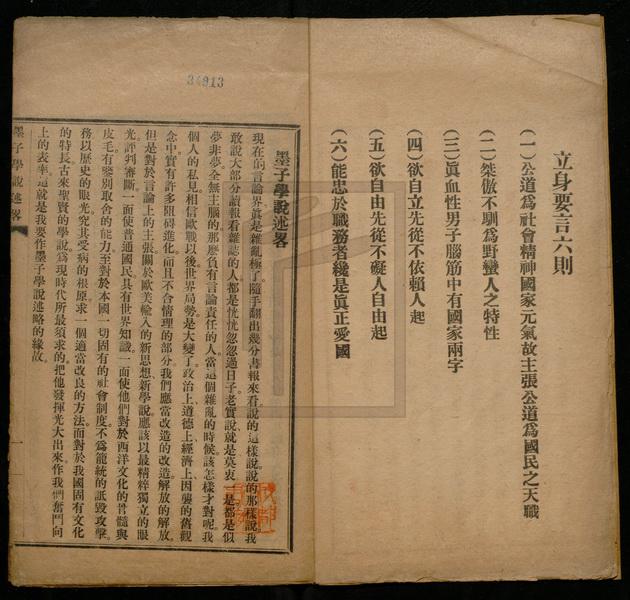 立身要言六則
(一)公道爲社會精神國家元氣故主張公道爲國民之天職
(二)桀傲不馴爲野蠻人之特性
(三)眞血性男子腦筋中有國家兩字
(四)欲自立先從不依賴人起
(五)欲自由先從不礙人自由起
(六)能忠於職務者纔是眞正愛國
34913
墨子學說述畧
現在的言論界眞是雜亂極了隨手翻出幾分書報來看說的這樣說說的那樣說我
敢說大部分讀報看雜誌的人都是恍恍忽忽過日子老實說就是莫衷一是都是似
夢非夢全無主腦的那麼負有言論責任的人當這個雜亂的時候該怎樣才對呢我
個人的私見相信歐戰以後世界局勢是大變了政治上道德上經濟上因襲的舊觀
念中實有許多阻碍進化而且不合情理的部分我們應當改造的改造解放的解放
但是對於言論上的主張關於歐美輸入的新思想新學說應該以最精粹獨立的眼
光評判審斷一面使普通國民具有世界知識一面使他們對於西洋文化的骨髓與
皮毛有鑿別取舍的能力至對於本國一切固有的社會制度不爲籠統的詆毀攻擊
務以歷史的眼光究其受病的根原求一個適當改良的方法而對於我國固有文化
的特長古來聖賢的學說爲現時代所最須求的把他發揮光大出來作我們奮鬥向
上的表率這就是我要作墨子學說述略的緣故
墨子學說述畧
一